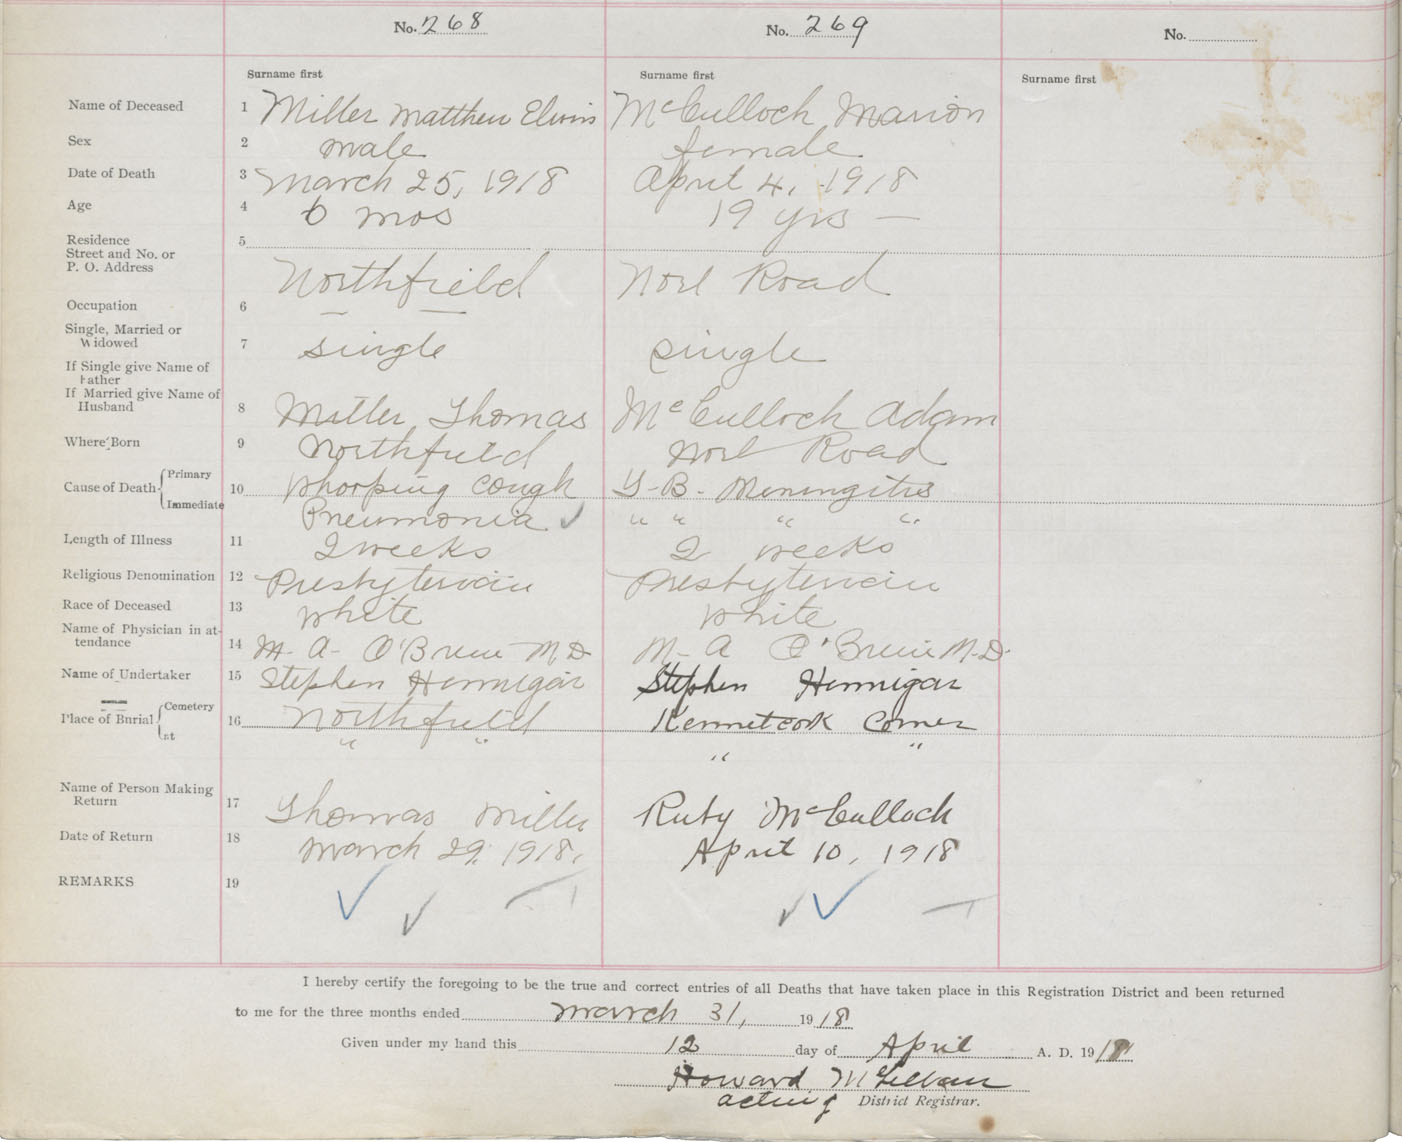 No. 268 No. 269 No.
Surname first Surname first Surname first
Name of Deceased 1 Miller Matthew Elvin McCulloch Marion
Sex 2 male female
Date of Death 3 March 25, 1918 April 4, 1918
Age 4 6 mos 19 yrs —
Residence 5
Street and No. or
P. O. Address Northfield Noel Road
Occupation 6 — —
Single, Married or
Widowed 7 single single
If Single give Name of
Father
If Married give Name of
Husband 8 Miller Thomas McCulloch Adam
Where Born 9 Northfield Noel Road
Cause of Death Primary 10 Whooping Cough T-B- Meningitis
Immediate Pneumonia ✓ " " " "
Length of Illness 11 2 weeks 2 weeks
Religious Denomination 12 Presbyterian Presbyterian
Race of Deceased 13 White White
Name of Physician in at-
tendance 14 M- A- O'Brien MD M- A O'Brien M.D.
Name of Undertaker 15 Stephen Hennigar Stephen Hennigar
Place of Burial Cemetery 16 Northfield Kennetcook Corner
at " " " "
Name of Person Making
Return 17 Thomas Miller Ruby McCulloch
Date of Return 18 March 29, 1918, April 10, 1918
REMARKS 19
I hereby certify the foregoing to be the true and correct entries of all Deaths that have taken place in this Registration District and been returned
to me for the three months ended March 31, 1918
Given under my hand this 12 day of April A. D. 1918
Howard
acting District Registrar.